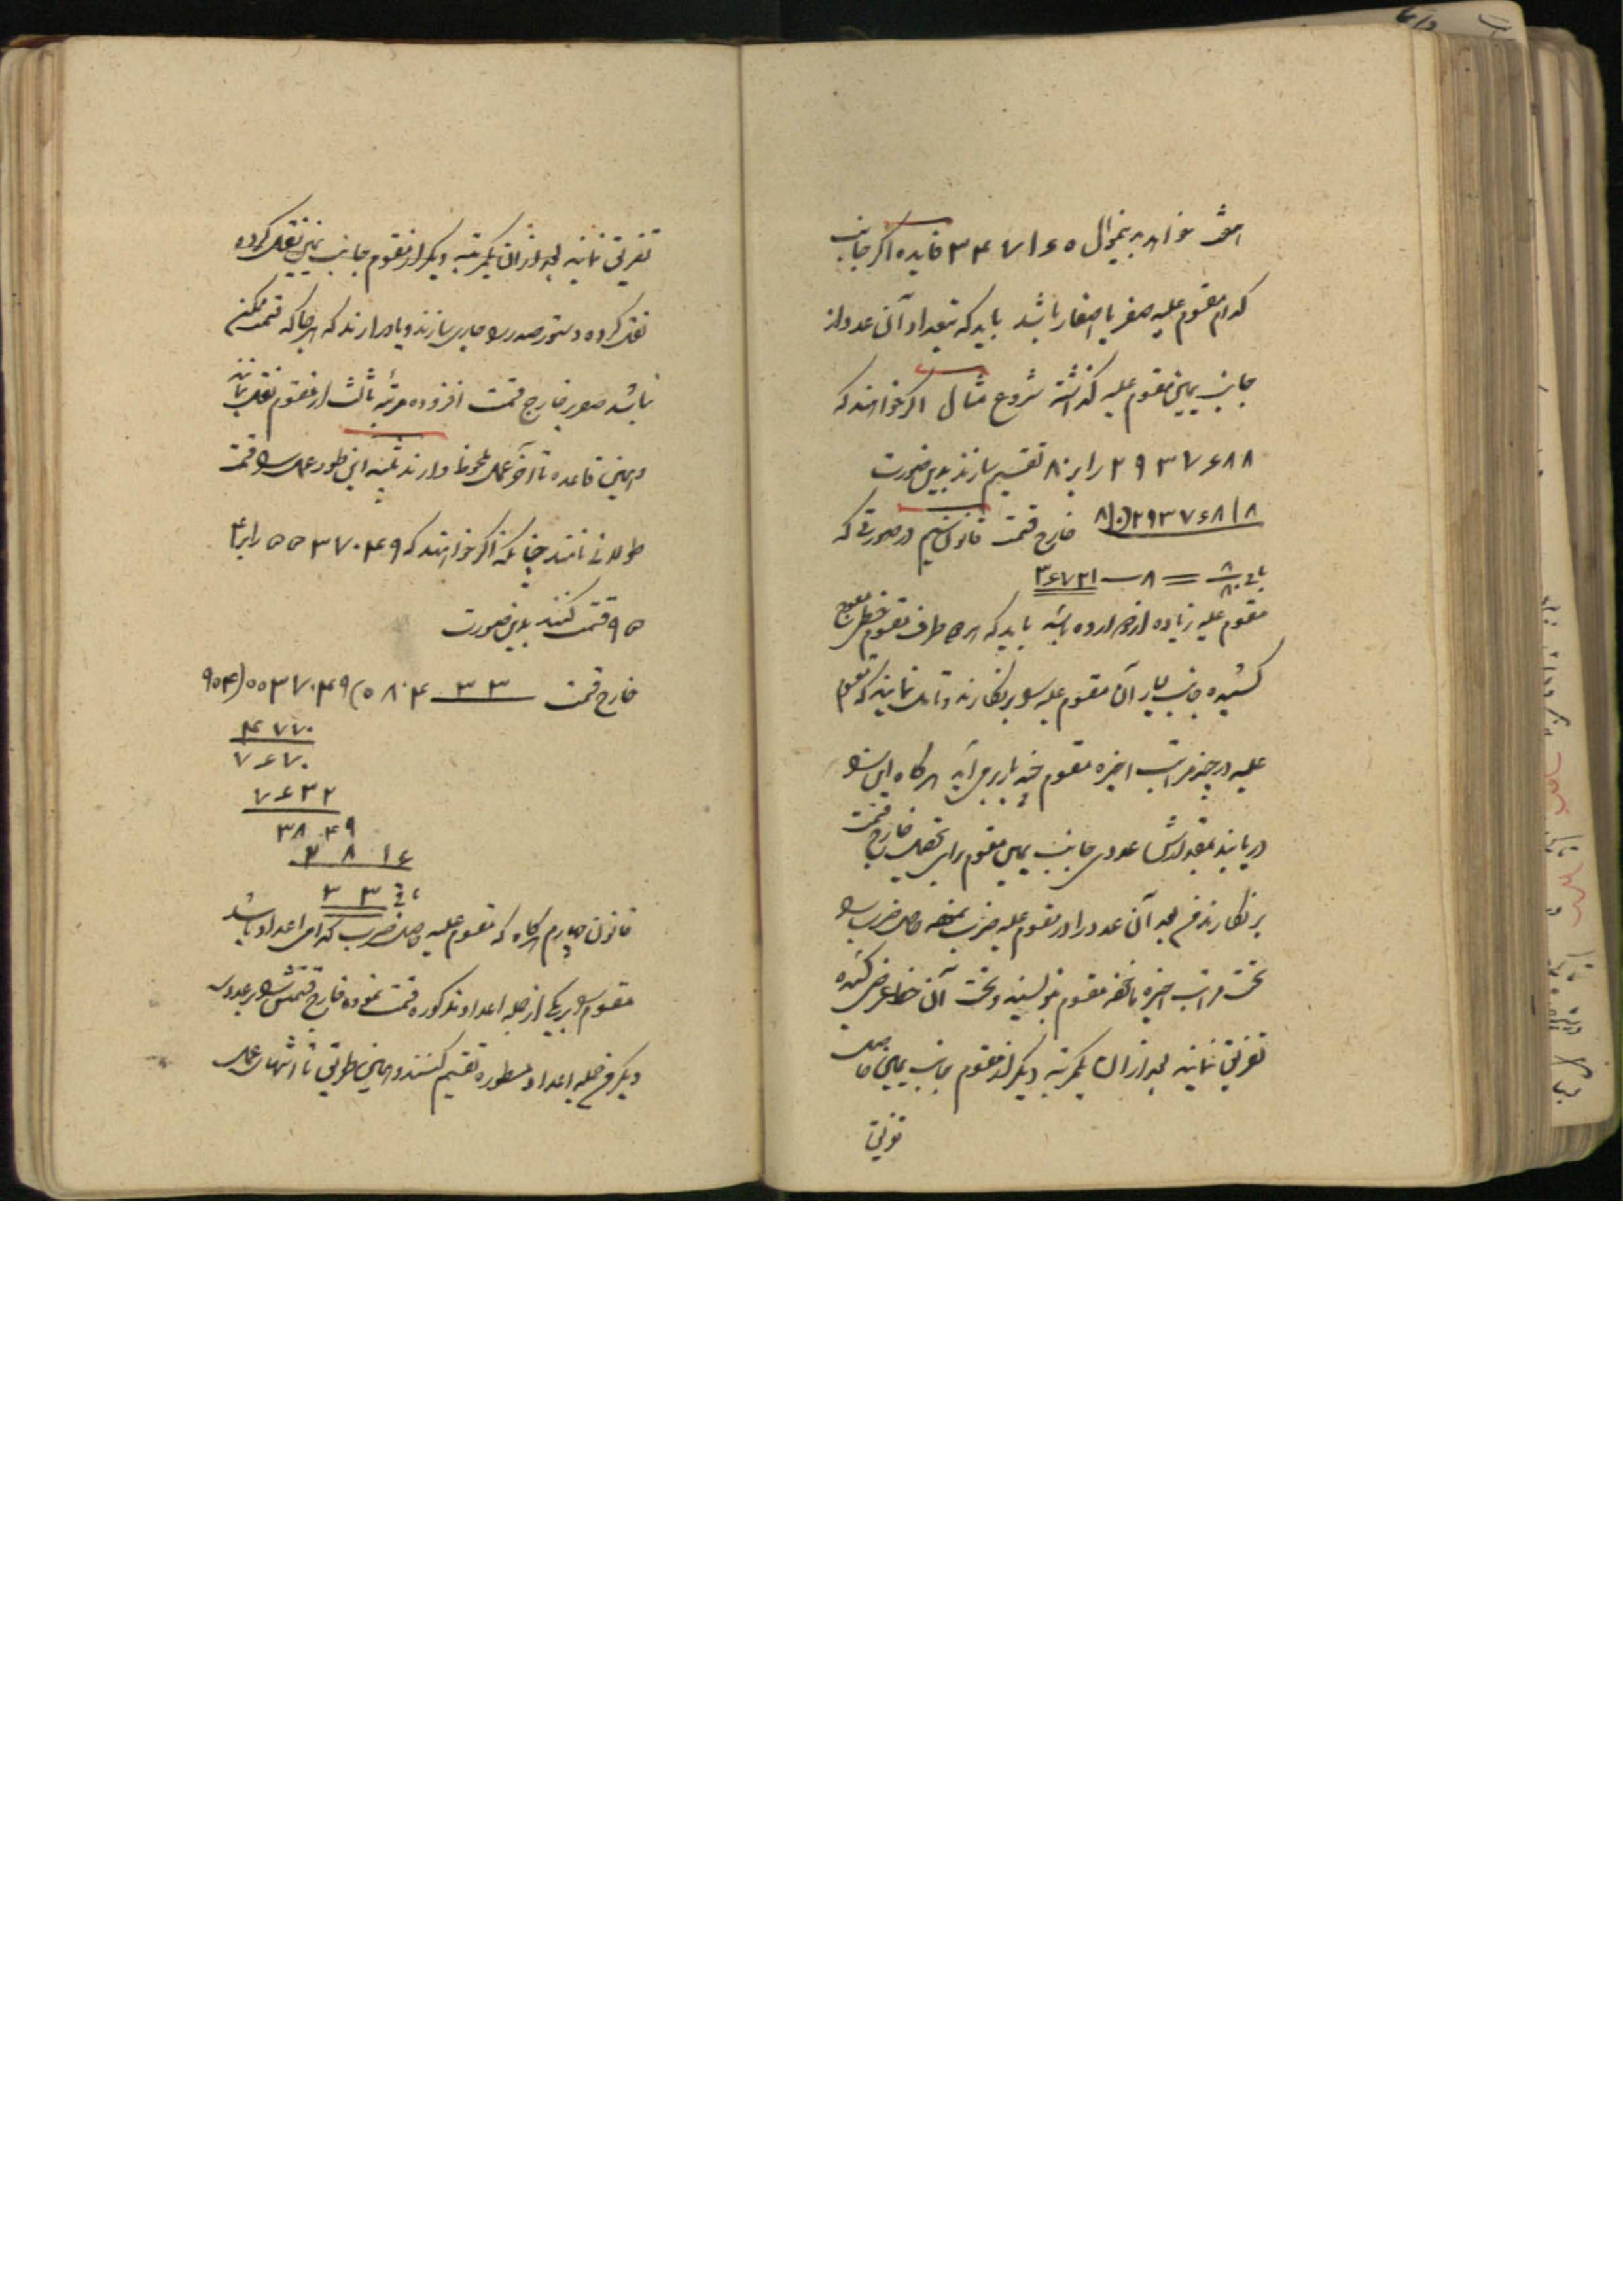 خواهد بدینمنوال ۳۴۷۱۶۵ فایده اگر جانب
کدام مقسوم علیه صفر یا اصفار باشد باید که بتعداد آن عدد از
جانب یمین مقسوم علیه گذاشته شروع مثال اگر خواهند که
۲۹۳۷۶۸۸ را بر ۸۰ تقسیم سازند بدین صورت
۸۰)۲۹۳۷۶۸/۸ خارج قسمت قانون سیم در صورتی که
باقی ۸/۸۰ = ۸ — ۳۶۷۲۱
مقسوم علیه زیاده از دوازده باشد باید که هر دو طرف مقسوم خط معوج
کشیده جانب یسار آن مقسوم علیه را بر نگارند و تامل نمایند که مقسوم
علیه در چند مراتب اخیره مقسوم چند بار برمی‌آید هرگاه این را
دریابند بمقدارش عددی جانب یمین مقسوم برای تحصیل خارج قسمت
بر نگارند فی بعد آن عدد را در مقسوم علیه ضرب نموده حاصل ضرب را
تحت مراتب اخیره مقسوم بنویسند و تحت آن خط عرضی کشیده
تفریق نمایند بعد ازان یکمرتبه دیگر از مقسوم بجانب یمین حاصل
تفریق
تفریق نمایند بعد ازان یکمرتبه دیگر از مقسوم جانب یمین نقل کرده
نقل کرده دستور صدر را جاری سازند و یاد دارند که هر جا که قسمت ممکن
نباشد صفر بر خارج قسمت افزوده مرتبه ثالث از مقسوم نقل نمایند
و همین قاعده تا آخر عمل ملحوظ دارند تنبیه این طور عمل را قسمت
طولانی نامند چنانکه اگر خواهند که ۵۵۳۷۰۴۹ را بر
۹۵۴ قسمت کنند بدین صورت
خارج قسمت ۳۳ — ۵۸۰۴)۵۵۳۷۰۴۹(۹۵۴
۴۷۷۰
۷۶۷۰
۷۶۳۲
۳۸۴۹
۳۸۱۶
باقی ۳۳
قانون چهارم هرگاه که مقسوم علیه حاصل ضرب کدامی اعداد باشد
مقسوم را بر یکی از جمله اعداد مذکوره قسمت نموده خارج قسمتش را بر عددی
دیگر فی جمله اعداد مسطوره تقسیم کنند و همین طریق تا انتهای عمل